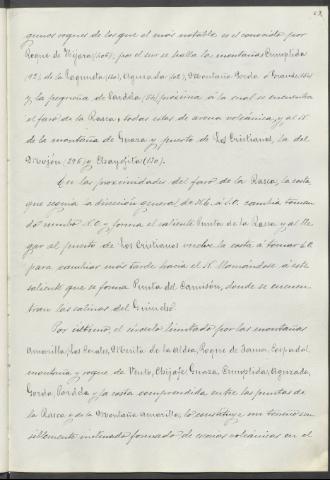 gunos roques de los que el más notable es el conocido por
Roque de Higara (405); por el sur se halla la montañas Cumplida
(92), de la Caguneta (110), Aguzada (162), Montaña Gorda ó Grande (154)
y la pequeña de Cardón (54) próxima á la cual se encuentra
el faro de la Rasca, todas ellas de arena volcánica, y al N.
de la montaña de Guaza y puerto de Los Cristianos, la del
Mojón, 246 y Chayofita (130).
En las proximidades del faro de la Rasca, la costa
que seguía la dirección general de N.E. á S.O. cambia toman
do rumbo N.O. y forma el saliente Punta de la Rasca y al lle
gar al puerto de Los Cristianos vuelve la costa á tomar S.O.
para cambiar más tarde hacia el N. llamándose á este
saliente que se forma Punta del Camisón, donde se encuen
tran las salinas del Guincho.
Por último, el círculo limitado por las montañas
Amarilla, Los Corales, Morita de la Aldea, Roque de Jama,
montaña y roque de Vento, Chijafe Guaza, Cumplida, Aguzada,
Gorda, y la costa comprendida entre las puntas de
la Rasca y de la Montaña Amarilla, lo constituye un terreno sen
sillamente inclinado formado de escorias volcánicas en el